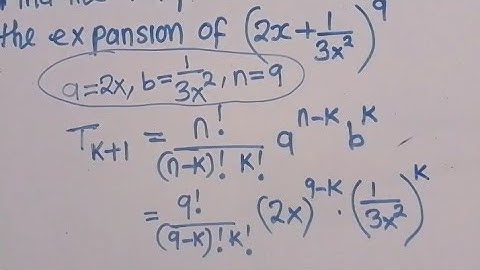 the expansion of (2x + 1/3x²)⁹
a=2x, b=1/3x², n=9
T_{K+1} = n!/(n-K)! K! a^{n-K} b^K
= 9!/(9-K)! K! (2x)^{9-K} · (1/3x²)^K